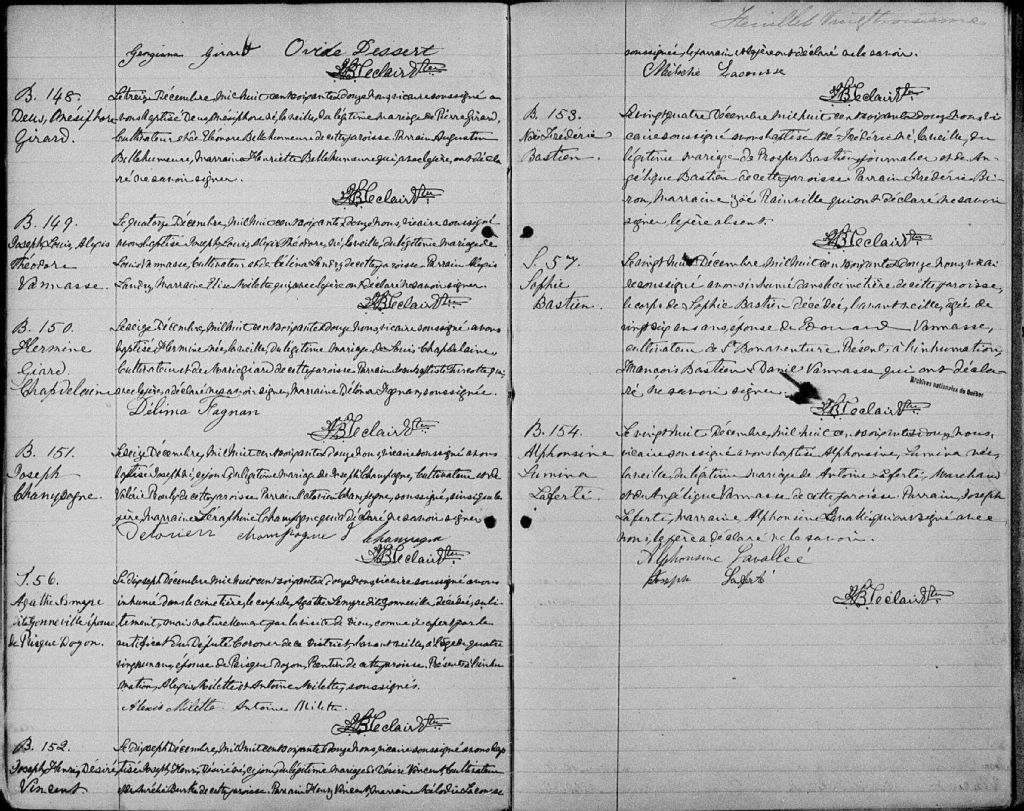 Georgiana Girard Ovide Dessert
JBLeclair Vtre
B. 148.
Deus, Onésiphore
Girard.
Le treize Décembre, mil huit cent soixante et douze, nous, vicaire soussigné a-
vons baptisé Deus, Onésiphore né, la veille, du légitime mariage de Pierre Girard,
Cultivateur et de Léonore Bellehumeur de cette paroisse. Parrain Augustin
Bellehumeur, Marraine Henriette Bellehumeur qui, ainsi que le père, ont décla-
ré ne savoir signer.
JBLeclair Vtre
B. 149.
Joseph, Louis, Alexis
Théodore
Vannasse.
Le quatorze Décembre, mil huit cent soixante et douze, nous, vicaire soussigné
avons baptisé Joseph, Louis, Alexis Théodore, né, la veille, du légitime mariage de
Louis Vannasse, Cultivateur et de Célina Landry de cette paroisse. Parrain Alexis
Landry, Marraine Elise Milette qui, ainsi que le père ont déclaré ne savoir signer.
JBLeclair Vtre
B. 150.
Hermine
Giard
Chapdelaine
Le seize Décembre, mil huit cent soixante et douze, nous, vicaire soussigné avons
baptisé Hermine née, la veille, du légitime mariage de Louis Chapdelaine,
Cultivateur et de Marie Giard de cette paroisse. Parrain Jean Baptiste qui,
ainsi que le père, a déclaré ne savoir signer, Marraine Délima Fagnan, soussignée.
Délima Fagnan
JBLeclair Vtre
B. 151.
Joseph
Champagne.
Le seize Décembre, mil huit cent soixante et douze, nous, vicaire soussigné avons
baptisé Joseph né, ce jour, du légitime mariage de Joseph Champagne, Cultivateur et de
Valérie de cette paroisse. Parrain Octavien Champagne, soussigné, ainsi que le
père, Marraine Séraphine Champagne qui a déclaré ne savoir signer
Octavien champagne J Champagne
JBLeclair Vtre
S. 56.
Agathe Lemyre
dit Gonneville épouse
de Prisque Doyon.
Le dix sept Décembre, mil huit cent soixante et douze, nous, vicaire soussigné avons
inhumé dans le cimetière, le corps de Agathe Lemyre dit Gonneville décédée, subi-
tement, mais naturellement par la visite de Dieu, comme il appert par le
certificat du Député Coroner de ce District, l'avant veille, à l'âge de quatre
vingt un ans, épouse de Prisque Doyon, Rentier de cette paroisse. Présents à l'inhu-
mation, Alexis Milette et Antoine Milette, soussignés.
Alexis Milette Antoine Milette.
JBLeclair Vtre
B. 152.
Joseph, Henri, Désiré
Vincent
Le dix sept Décembre, mil huit cent soixante et douze, nous, vicaire soussigné avons bap-
tisé Joseph, Henri, Désiré né, ce jour, du légitime mariage de Désiré Vincent, Cultivateur
et de Aurélie Burke de cette paroisse. Parrain Henry Vincent, Marraine Mélodie Lacourse
Feuillet Vingt troisième
soussignée, le parrain et le père ont déclaré ne le savoir.
Lacourse
JBLeclair Vtre
B. 153.
Noé Fréderic
Bastien.
Le vingt quatre Décembre, mil huit cent soixante et douze, nous, vi-
caire soussigné avons baptisé Noé Fréderic né, la veille, du
légitime mariage de Prosper Bastien, Journalier et de An-
gélique Bastien de cette paroisse. Parrain Fréderic Bi-
ron, Marraine Zoé Rainville qui ont déclaré ne savoir
signer, le père absent.
JBLeclair Vtre
S. 57.
Sophie
Bastien.
Le vingt huit Décembre, mil huit cent soixante et douze, nous, vicai-
re soussigné avons inhumé dans le cimetière de cette paroisse,
le corps de Sophie Bastien décédée, l'avant veille, âgée de
vingt six ans, épouse de Edouard Vannasse,
cultivateur de St Bonaventure. Présents à l'inhumation,
François Bastien & Daniel Vannasse qui ont décla-
ré ne savoir signer.
Archives nationales du Québec
JBLeclair Vtre
B. 154.
Alphonsine
Lumina
Laferté.
Le vingt huit Décembre, mil huit cent soixante et douze, nous,
vicaire soussigné avons baptisé Alphonsine, Lumina née,
la veille du légitime mariage de Antoine Laferté, Marchand
et de Angélique Vannasse de cette paroisse. Parrain, Joseph
Laferté, Marraine, Alphonsine Lavallée qui ont signé avec
nous, le père a déclaré ne le savoir.
Alphonsine Lavalleé
Joseph Laferté
JBLeclair Vtre